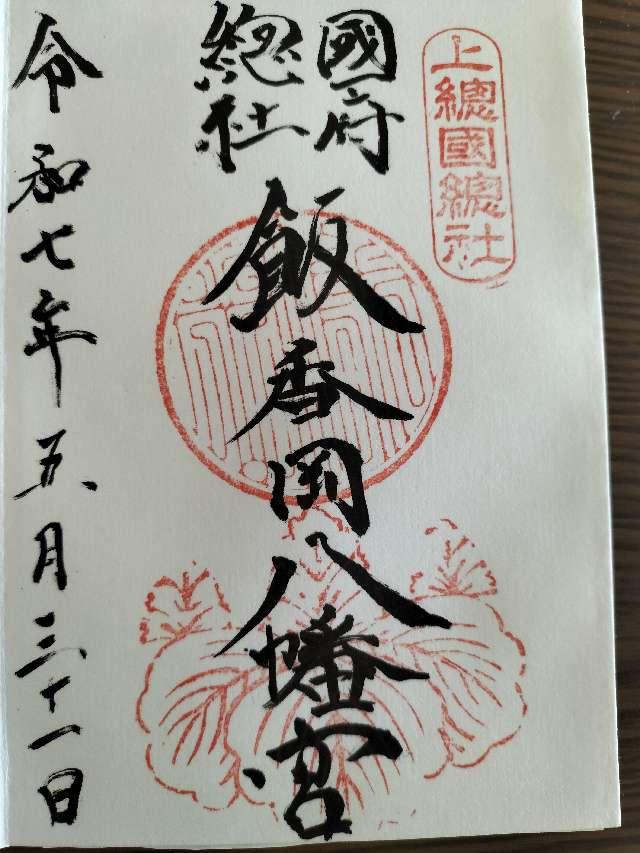 上總國總社
國府
總社
飯香岡八幡宮
令和七年五月三十一日